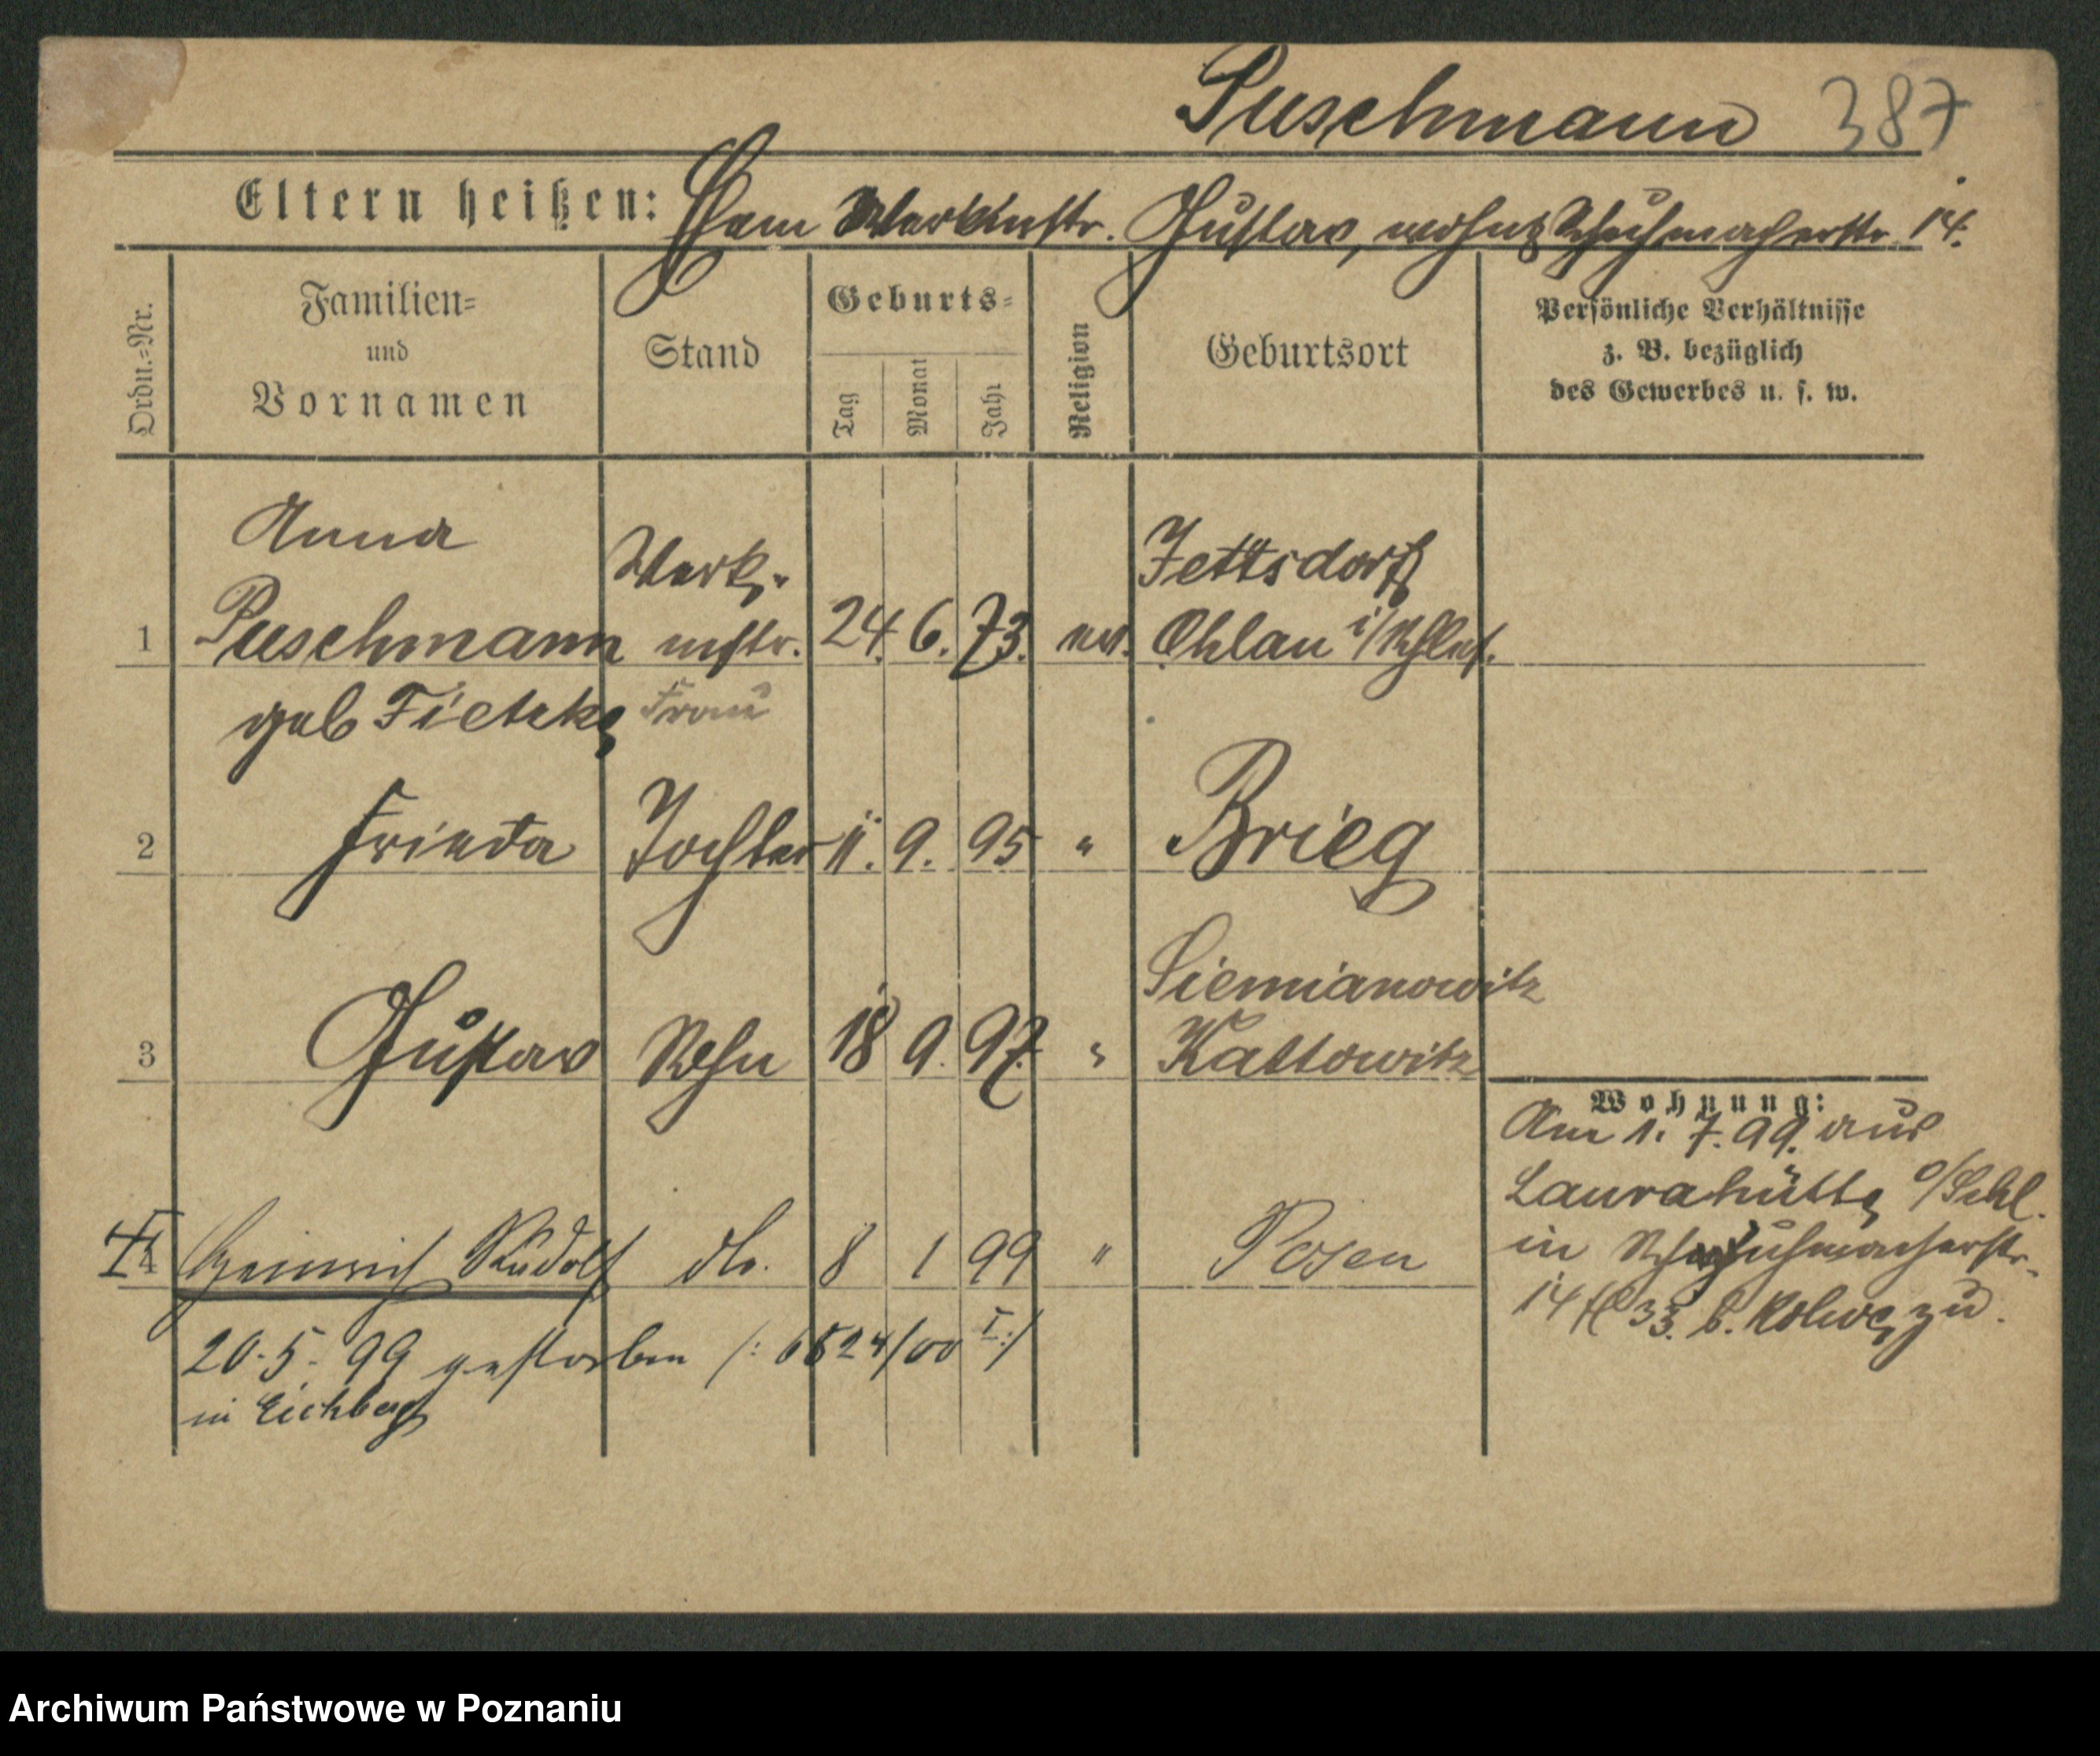 Puschmann 387
Eltern heißen: Ham Werkmstr. Gustav, wohnt Schuhmacherstr. 14.
Ordn.-Nr.
Familien-
und
Vornamen
Stand
Geburts-
Tag
Monat
Jahr
Religion
Geburtsort
Persönliche Verhältnisse
z. B. bezüglich
des Gewerbes u. s. w.
Anna
1 Puschmann
geb Fietzke
Werk-
mstr.
Frau
24. 6. 73. ev.
Jettsdorf
Ohlau i/Schles.
2 Frieda Tochter 11. 9. 95 " Brieg
3 Gustav Sohn 18 9. 97. "
Siemianowitz
Kattowitz
4 Heinrich Rudolf do. 8 1 99 " Posen
20.5.99 gestorben
in Eichberg
Wohnung:
Am 1. 7. 99. aus
Laurahütte o/Schl.
in Schuhmacherstr.
14 zu.